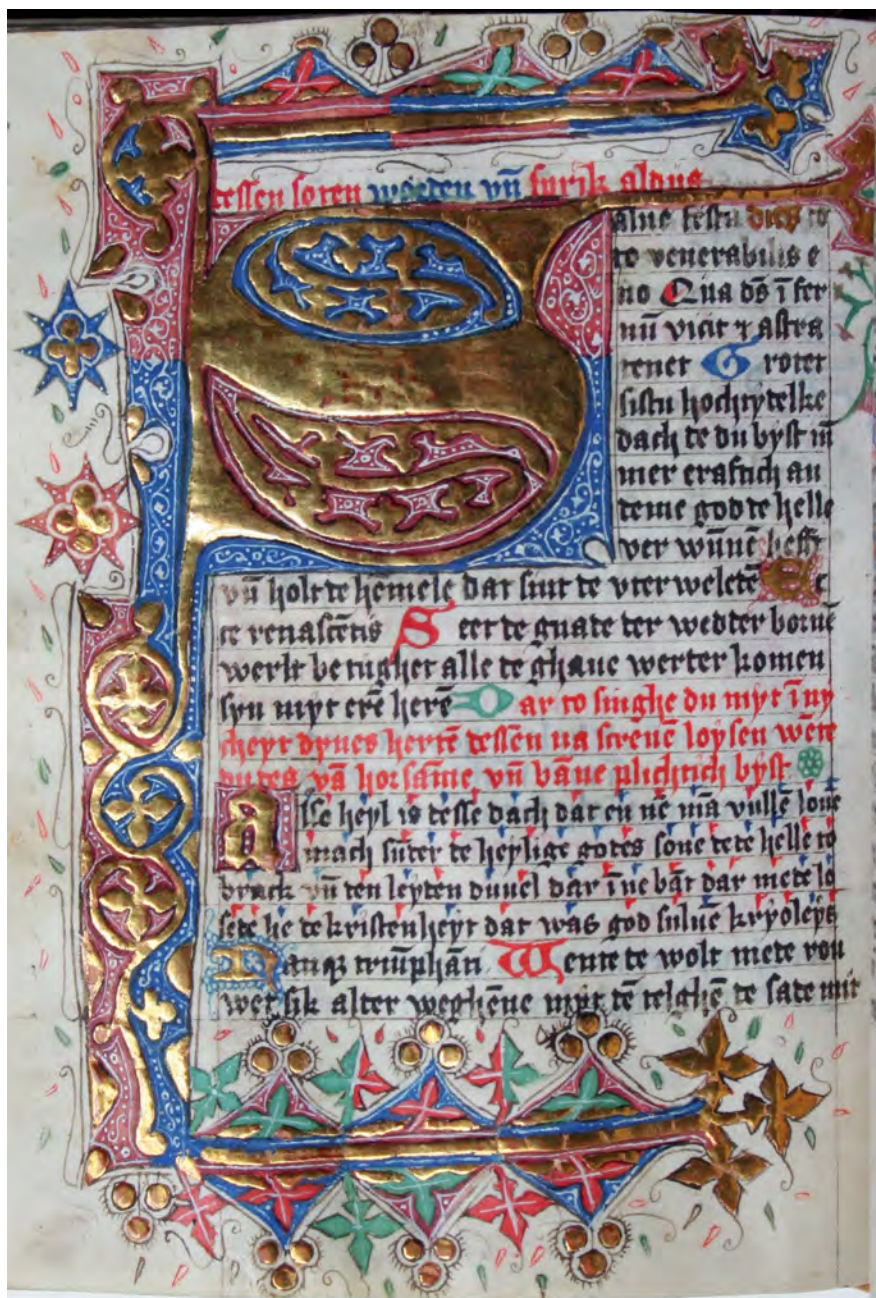 tessen soten worden vn̄ sprik aldus
alue festa dies to
to venerabilis e
uo Qua ds̄ ī fer
nū vicit ⁊ astra
tenet Grotet
sistu hochtytelke
dach te du byst ūm
mer eraftich an
teme god te helle
ver wūnē hefft
vn̄ holt te hēmele dar sint te vter weletē Ec
ce renascētis Seet te gnate ter wedder bornē
werlt be tughet alle te ghaue werter komen
syn myt erē herē Dar to singhe du myt īny
cheyt dynes hertē tessen na screuē loysen wēte
du tes vā horsāme vn̄ bāne plichtich byst
Also heyl is tesse dach dat en nē mā vullē louē
mach sūter te heylige gotes sone te te helle to
brack vn̄ ten leyten duuel dar īne bāt dar mete lo
sete he te kristenheyt dat was god suluē kryoleys
Nanq̄ triūphāti Wente te wolt mete vou
wet sik alter weghēne myt tē telghē te sate mit